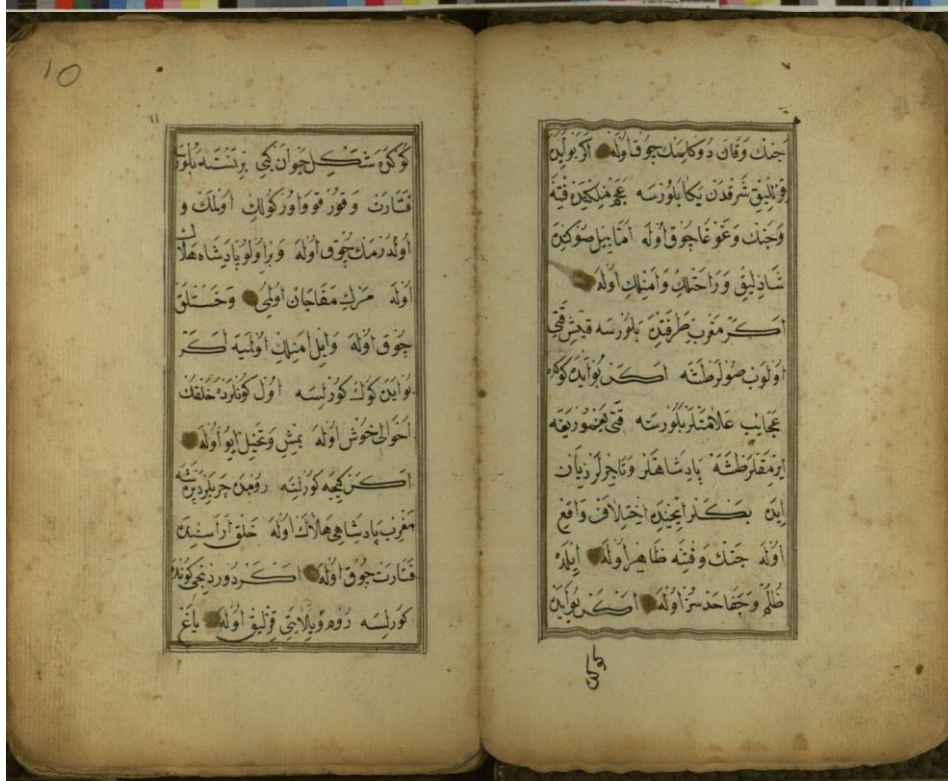 جنك وقان دوكلمك جوق اوله اكر بو ايده
قزلليق شرقدن يكا بلورسه عجم ملكنده فتنه
وجنك وغوغا جوق اوله اما ييل صوكنده
شاذليق وراحتلك وامنلك اوله
اكر مغرب طرفنده بلورسه قيش قتى
اولوب صولر طشه اكر بو ايده كوكده
عجايب علامتلر بلورسه قتى يغمور يغه
ايرمقلر طشه پادشاهلر وتاجرلر زيان
ايده بكلر ايچنده اختلاف واقع
اوله جنك وفتنه ظاهر اوله ايلده
ظلم وجفا حدسز اوله اكر بو ايده
كوك
10
١١
كوكده شكل حيوان كبى بر نسنه بلورسه
قتارت وقورقو واوركولك اولمك و
اولدرمك چوق اوله وبر اولو پادشاه هلاك
اوله مرك مفاجان اولى وخستلق
جوق اوله وايل امنلك اولميه اكر
بو ايده كوك كورلسه اول كونلرده خلقك
احوالى خوش اوله يمش ونخيل ايو اوله
اكر كيجه كورلسه رومده چريلر ديرشه
مغرب پادشاهى هلاك اوله خلق اراسنده
قتارت جوق اوله اكر دوردنجى كونده
كورلسه روم ويلايتى قزلليق اوله ياغ